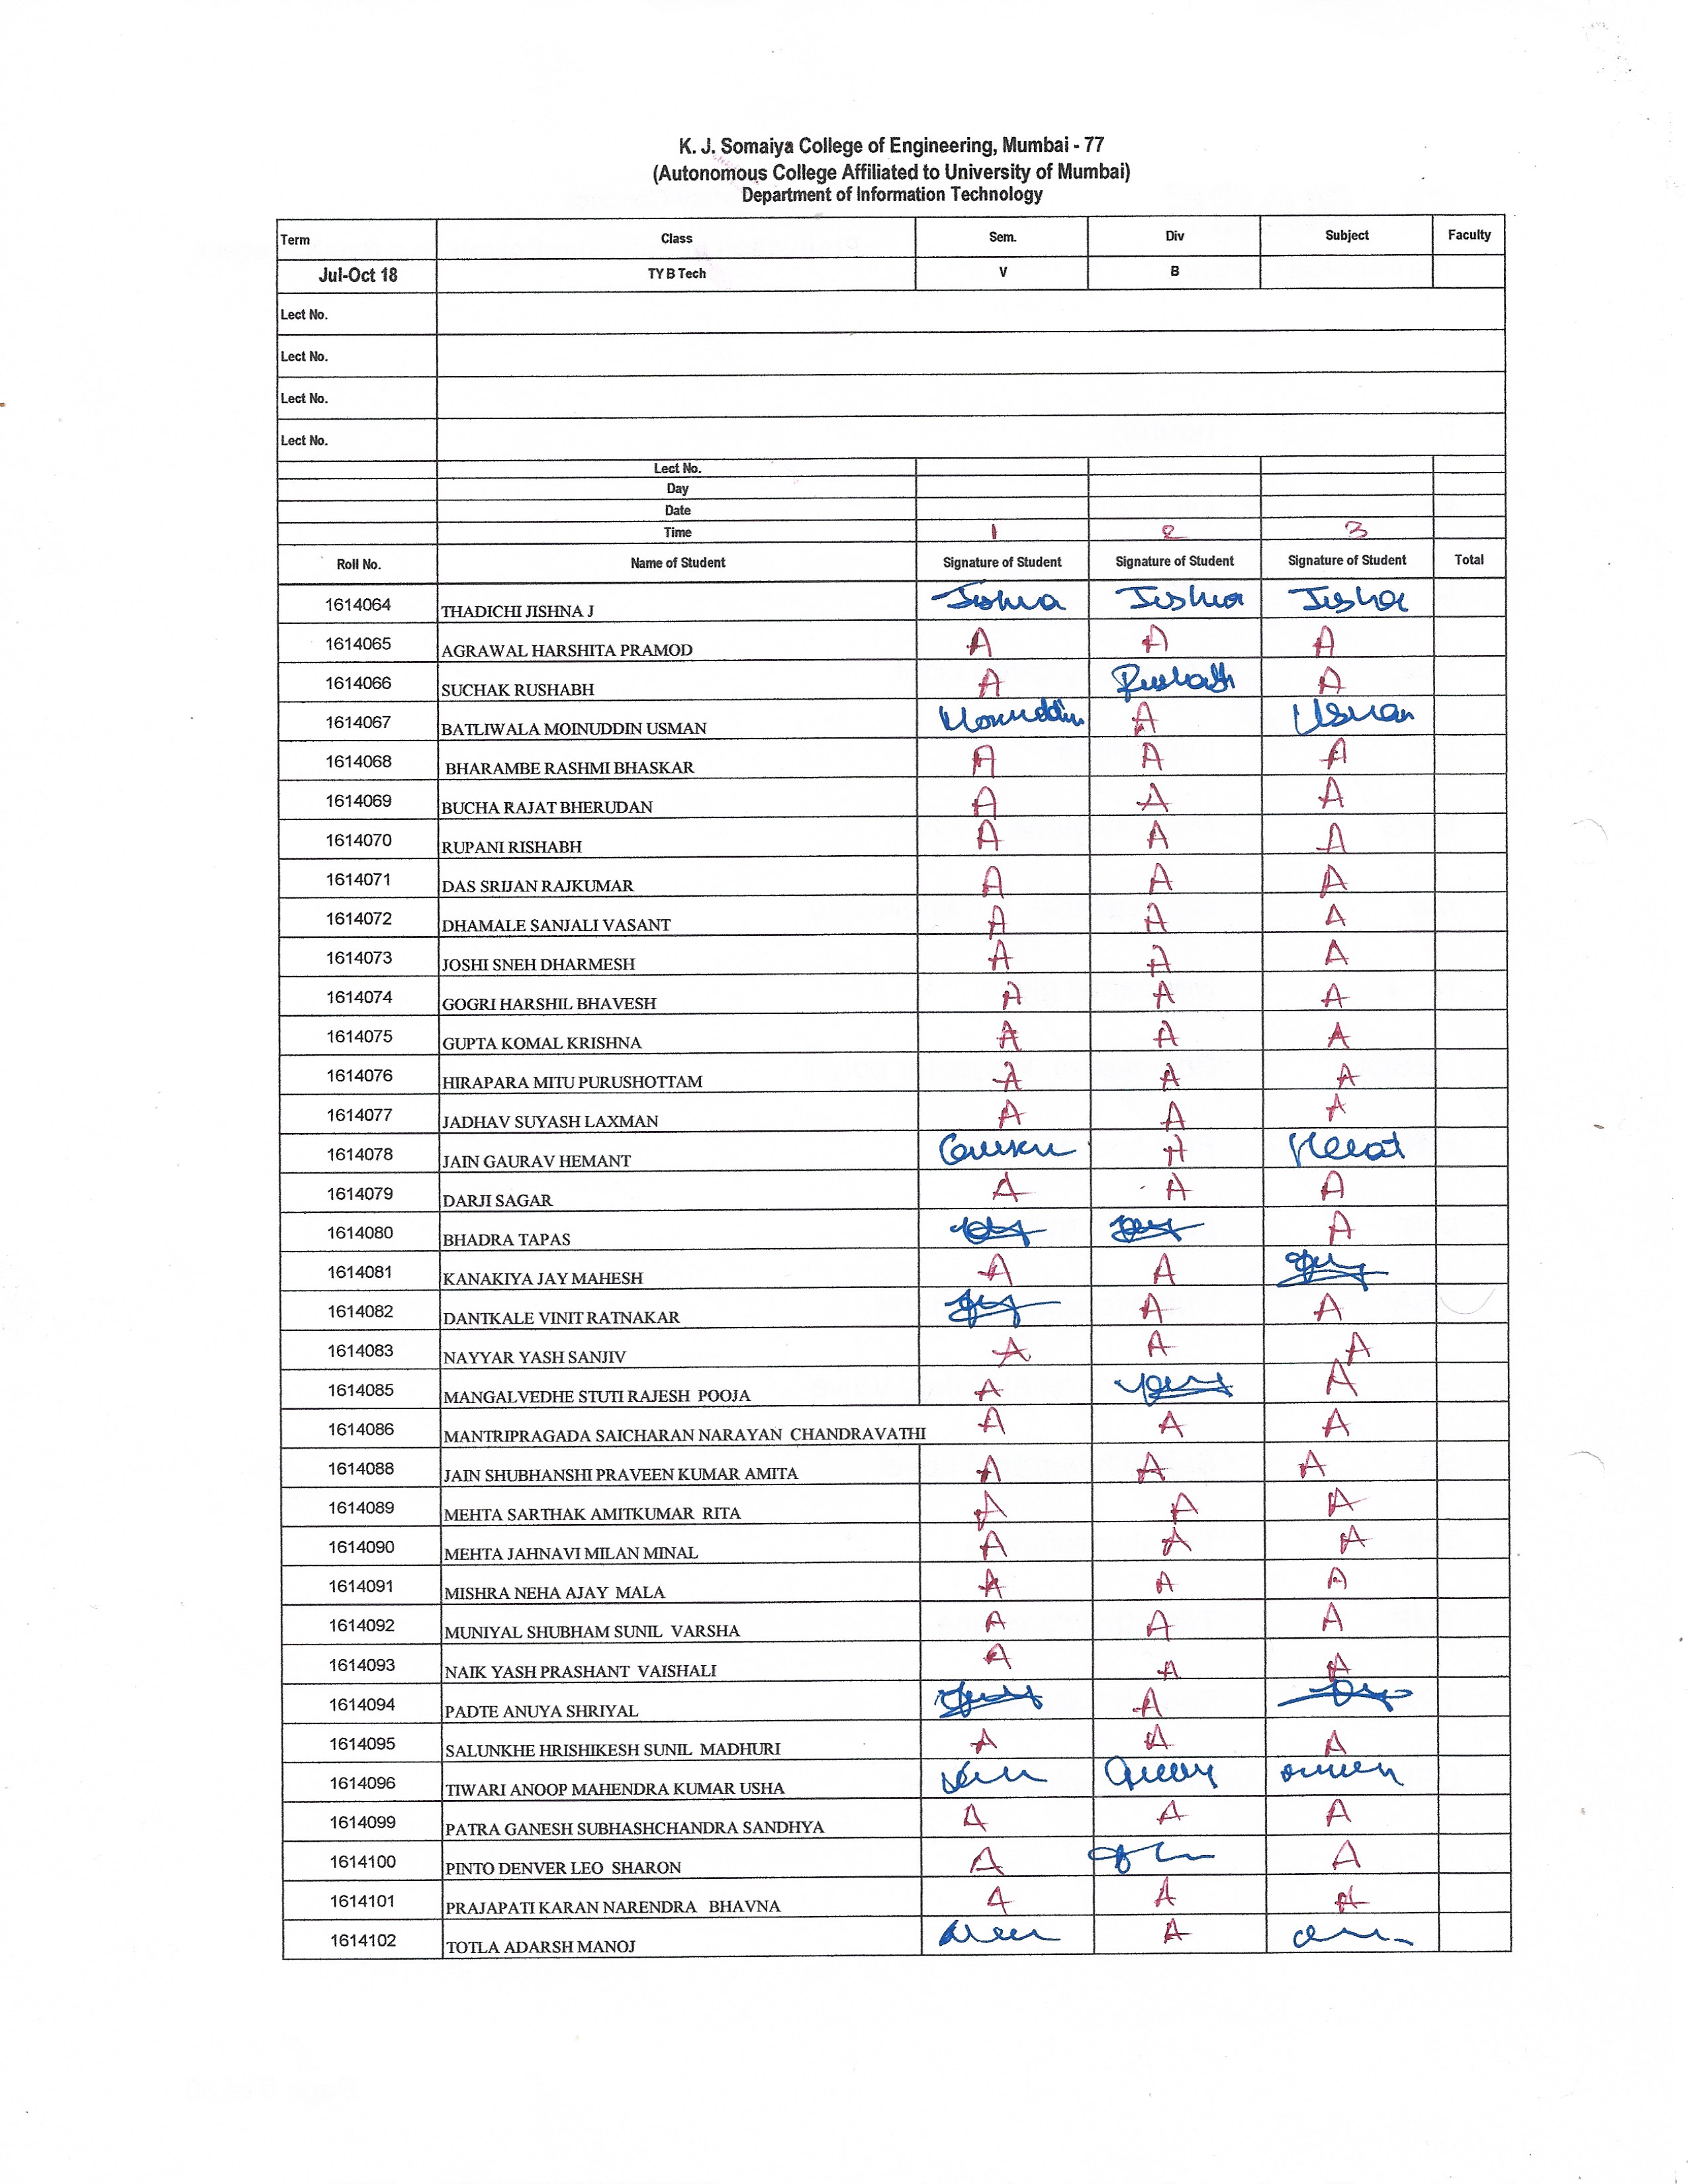 K. J. Somaiya College of Engineering, Mumbai - 77
(Autonomous College Affiliated to University of Mumbai)
Department of Information Technology
Term Class Sem. Div Subject Faculty
Jul-Oct 18 TY B Tech V B
Lect No.
Lect No.
Lect No.
Lect No.
Lect No.
Day
Date
Time 1 2 3
Roll No. Name of Student Signature of Student Signature of Student Signature of Student Total
1614064 THADICHI JISHNA J Jishna Jishna Jisha
1614065 AGRAWAL HARSHITA PRAMOD A A A
1614066 SUCHAK RUSHABH A Rushabh A
1614067 BATLIWALA MOINUDDIN USMAN Moinuddin A Usman
1614068 BHARAMBE RASHMI BHASKAR A A A
1614069 BUCHA RAJAT BHERUDAN A A A
1614070 RUPANI RISHABH A A A
1614071 DAS SRIJAN RAJKUMAR A A A
1614072 DHAMALE SANJALI VASANT A A A
1614073 JOSHI SNEH DHARMESH A A A
1614074 GOGRI HARSHIL BHAVESH A A A
1614075 GUPTA KOMAL KRISHNA A A A
1614076 HIRAPARA MITU PURUSHOTTAM A A A
1614077 JADHAV SUYASH LAXMAN A A A
1614078 JAIN GAURAV HEMANT A
1614079 DARJI SAGAR A A A
1614080 BHADRA TAPAS A
1614081 KANAKIYA JAY MAHESH A A
1614082 DANTKALE VINIT RATNAKAR A A
1614083 NAYYAR YASH SANJIV A A A
1614085 MANGALVEDHE STUTI RAJESH POOJA A A
1614086 MANTRIPRAGADA SAICHARAN NARAYAN CHANDRAVATHI A A A
1614088 JAIN SHUBHANSHI PRAVEEN KUMAR AMITA A A A
1614089 MEHTA SARTHAK AMITKUMAR RITA A A A
1614090 MEHTA JAHNAVI MILAN MINAL A A A
1614091 MISHRA NEHA AJAY MALA A A A
1614092 MUNIYAL SHUBHAM SUNIL VARSHA A A A
1614093 NAIK YASH PRASHANT VAISHALI A A A
1614094 PADTE ANUYA SHRIYAL A
1614095 SALUNKHE HRISHIKESH SUNIL MADHURI A A A
1614096 TIWARI ANOOP MAHENDRA KUMAR USHA
1614099 PATRA GANESH SUBHASHCHANDRA SANDHYA A A A
1614100 PINTO DENVER LEO SHARON A A
1614101 PRAJAPATI KARAN NARENDRA BHAVNA A A A
1614102 TOTLA ADARSH MANOJ A